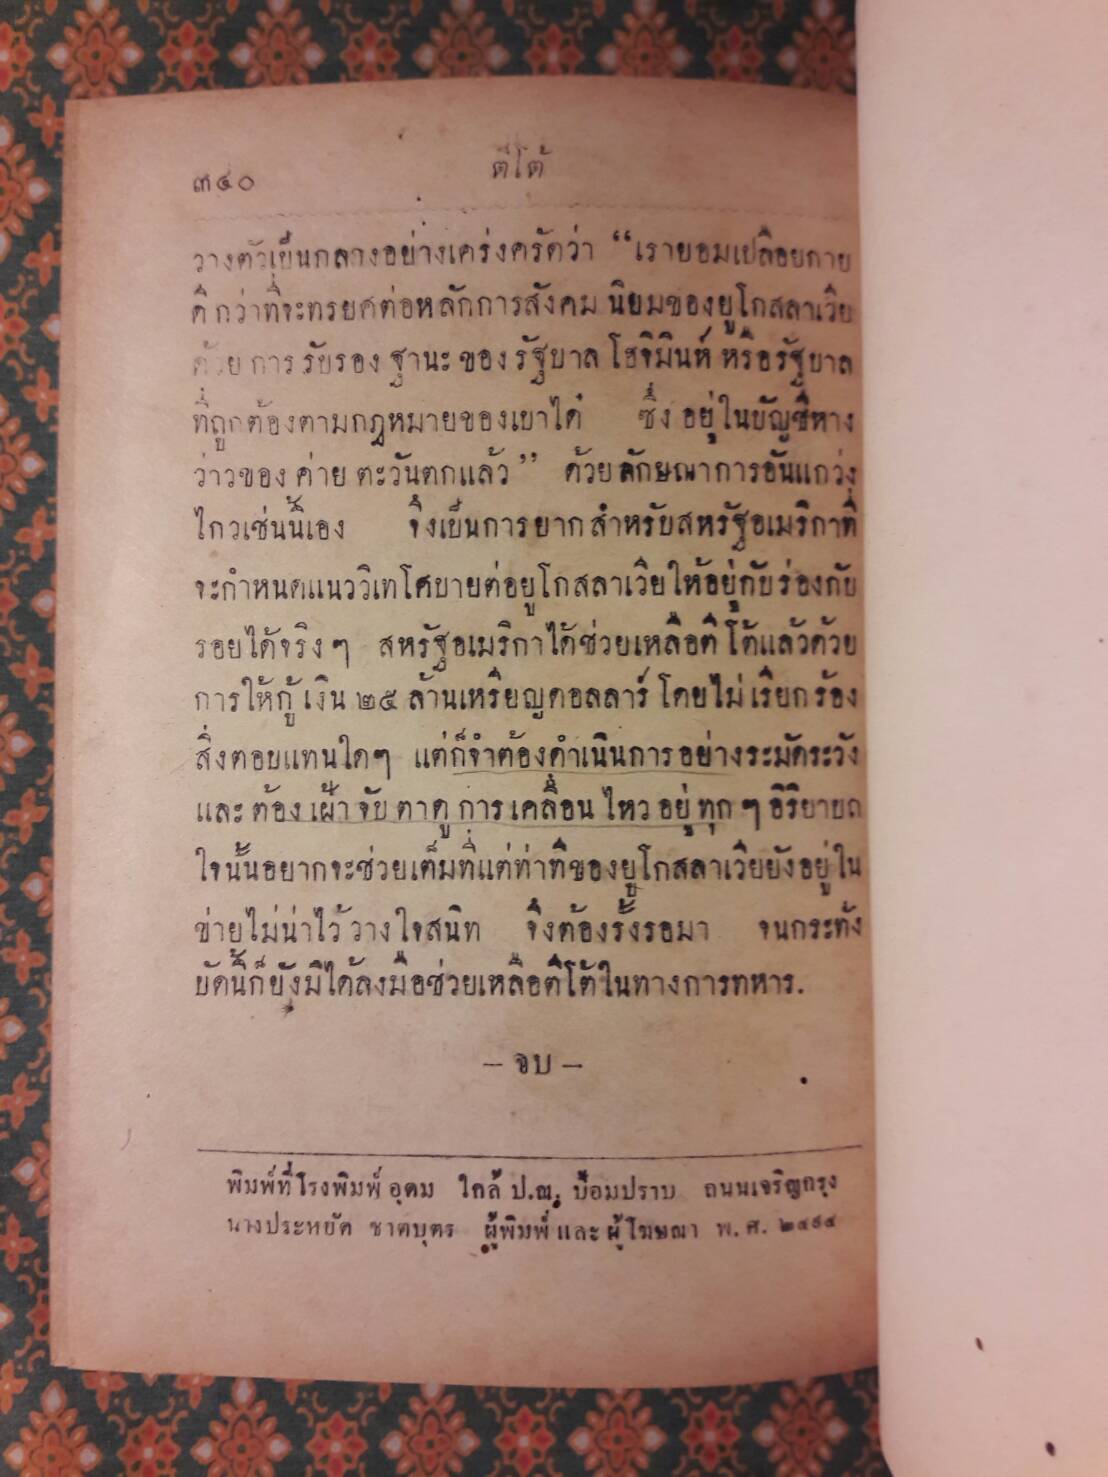 ๓๔๐
ตีโต้
วางตัวเป็นกลางอย่างเคร่งครัดว่า “เรายอมเปลือยกาย
ดีกว่าที่จะทรยศต่อหลักการสังคม นิยมของยูโกสลาเวีย
ด้วย การ รับรอง ฐานะ ของ รัฐบาล โฮจิมินห์ หรือรัฐบาล
ที่ถูกต้องตามกฎหมายของเบาได๋ ซึ่ง อยู่ในบัญชีหาง
ว่าวของ ค่าย ตะวันตกแล้ว” ด้วยลักษณาการอันแกว่ง
ไกวเช่นนี้เอง จึงเป็นการยากสำหรับสหรัฐอเมริกาที่
จะกำหนดแนววิเทโศบายต่อยูโกสลาเวียให้อยู่กับร่องกับ
รอยได้จริงๆ สหรัฐอเมริกาได้ช่วยเหลือตีโต้แล้วด้วย
การให้กู้ เงิน ๒๕ ล้านเหรียญดอลลาร์ โดยไม่ เรียกร้อง
สิ่งตอบแทนใดๆ แต่ก็จำต้องดำเนินการอย่างระมัดระวัง
และ ต้อง เฝ้า จับ ตาดู การ เคลื่อน ไหว อยู่ ทุก ๆ อิริยาบถ
ใจนั้นอยากจะช่วยเต็มที่แต่ท่าทีของยูโกสลาเวียยังอยู่ใน
ข่ายไม่น่าไว้ วางใจสนิท จึงต้องรั้งรอมา จนกระทั่ง
บัดนี้ก็ยังมิได้ลงมือช่วยเหลือตีโต้ในทางการทหาร.
— จบ —
พิมพ์ที่โรงพิมพ์ อุดม ใกล้ ป.ณ. ป้อมปราบ ถนนเจริญกรุง
นางประหยัด ชาตบุตร ผู้พิมพ์ และ ผู้โฆษณา พ. ศ. ๒๔๙๔